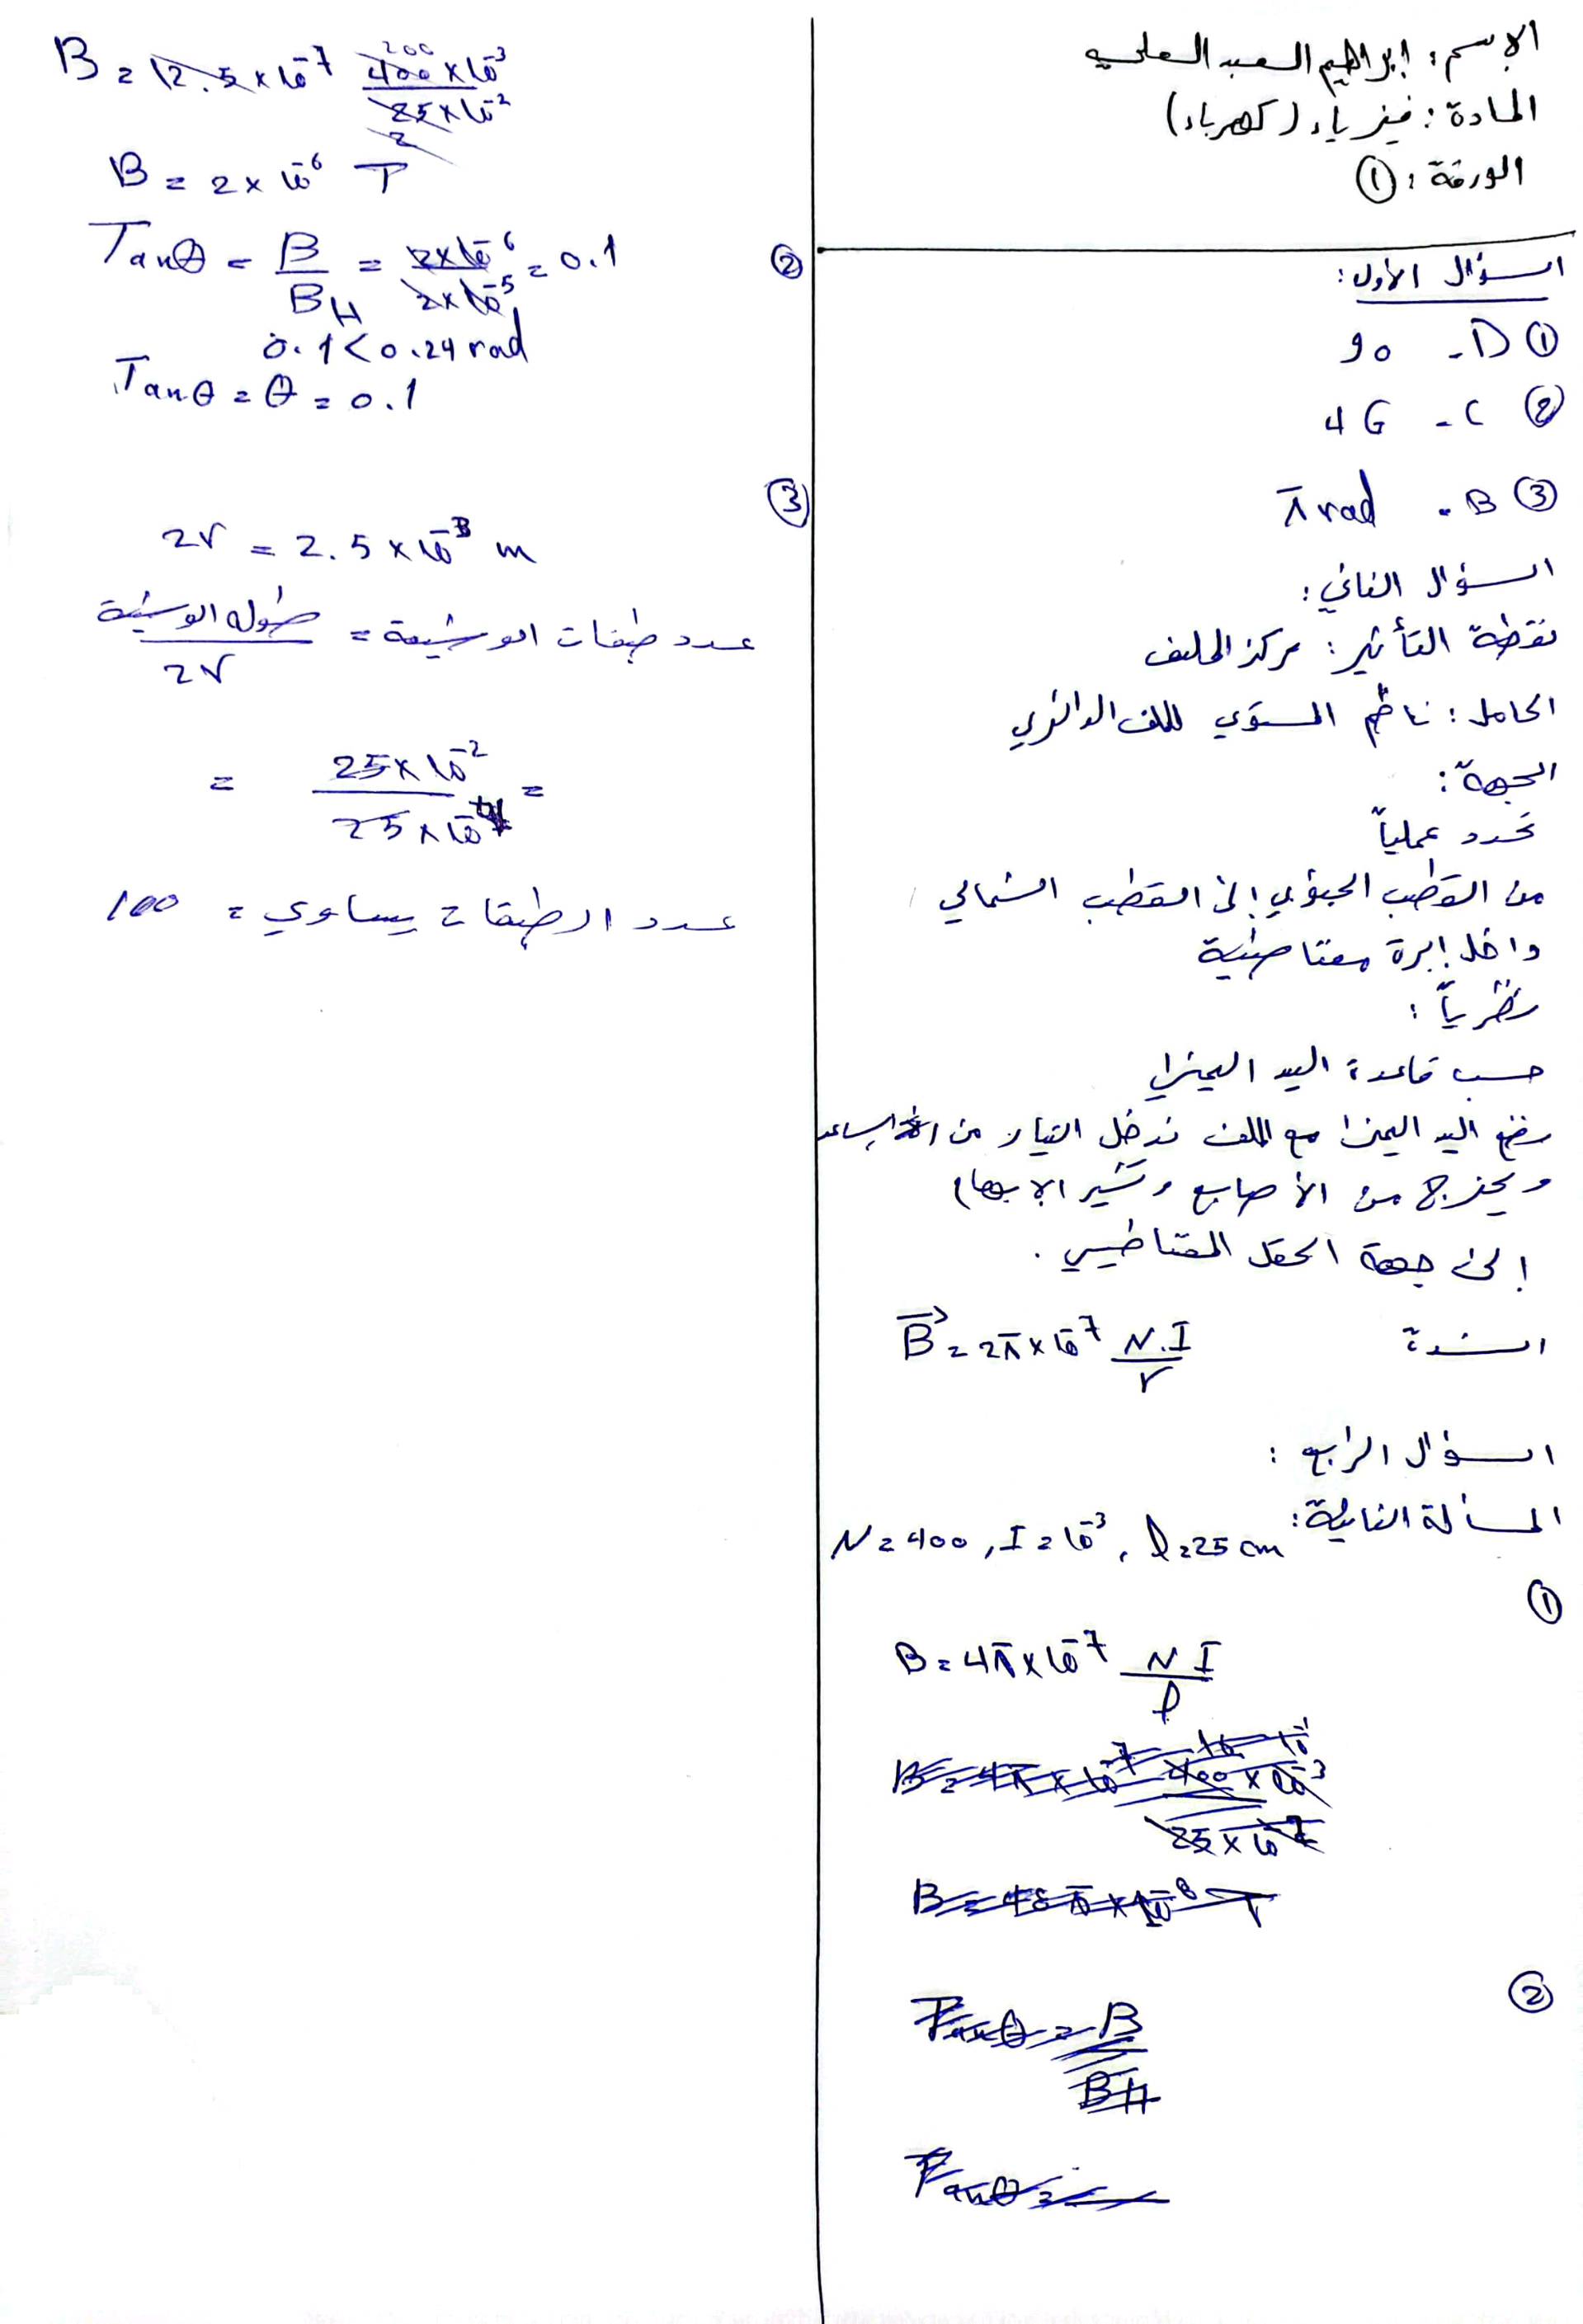 الاسم: ابراهيم السعيد العلي
المادة: فيزياء (كهرباء)
الورقة: ①
السؤال الأول:
① D - 90
② C - 4G
③ B - π rad
السؤال الثاني:
نقطة التأثير: مركز الملف
الحامل: ناظم المستوي للملف الدائري
الجهة:
تحدد عملياً
من القطب الجنوبي إلى القطب الشمالي
داخل إبرة مغناطيسية
نظرياً:
حسب قاعدة اليد اليمنى
نضع اليد اليمنى مع الملف ندخل التيار من الساعد
ويخرج من الأصابع وتشير الابهام
إلى جهة الحقل المغناطيسي.
الشدة B = 2π×10⁻⁷ N.I/r
السؤال الرابع:
المسألة الثانية: N = 400, I = 10⁻³, l = 25 cm
①
B = 4π×10⁻⁷ N I/l
B = 4π×10⁻⁷ 400×10⁻³/25×10⁻²
②
Tanθ = B/BH
Tanθ =
B = 12.5×10⁻⁷ 400×10⁻³/25×10⁻²
B = 2×10⁻⁶ T
② Tanθ = B/BH = 2×10⁻⁶/2×10⁻⁵ = 0.1
0.1 < 0.24 rad
Tanθ = θ = 0.1
③
2r = 2.5×10⁻³ m
عدد طبقات الوشيعة = طول الوشيعة/2r
= 25×10⁻²/25×10⁻⁴ =
عدد الطبقات يساوي = 100